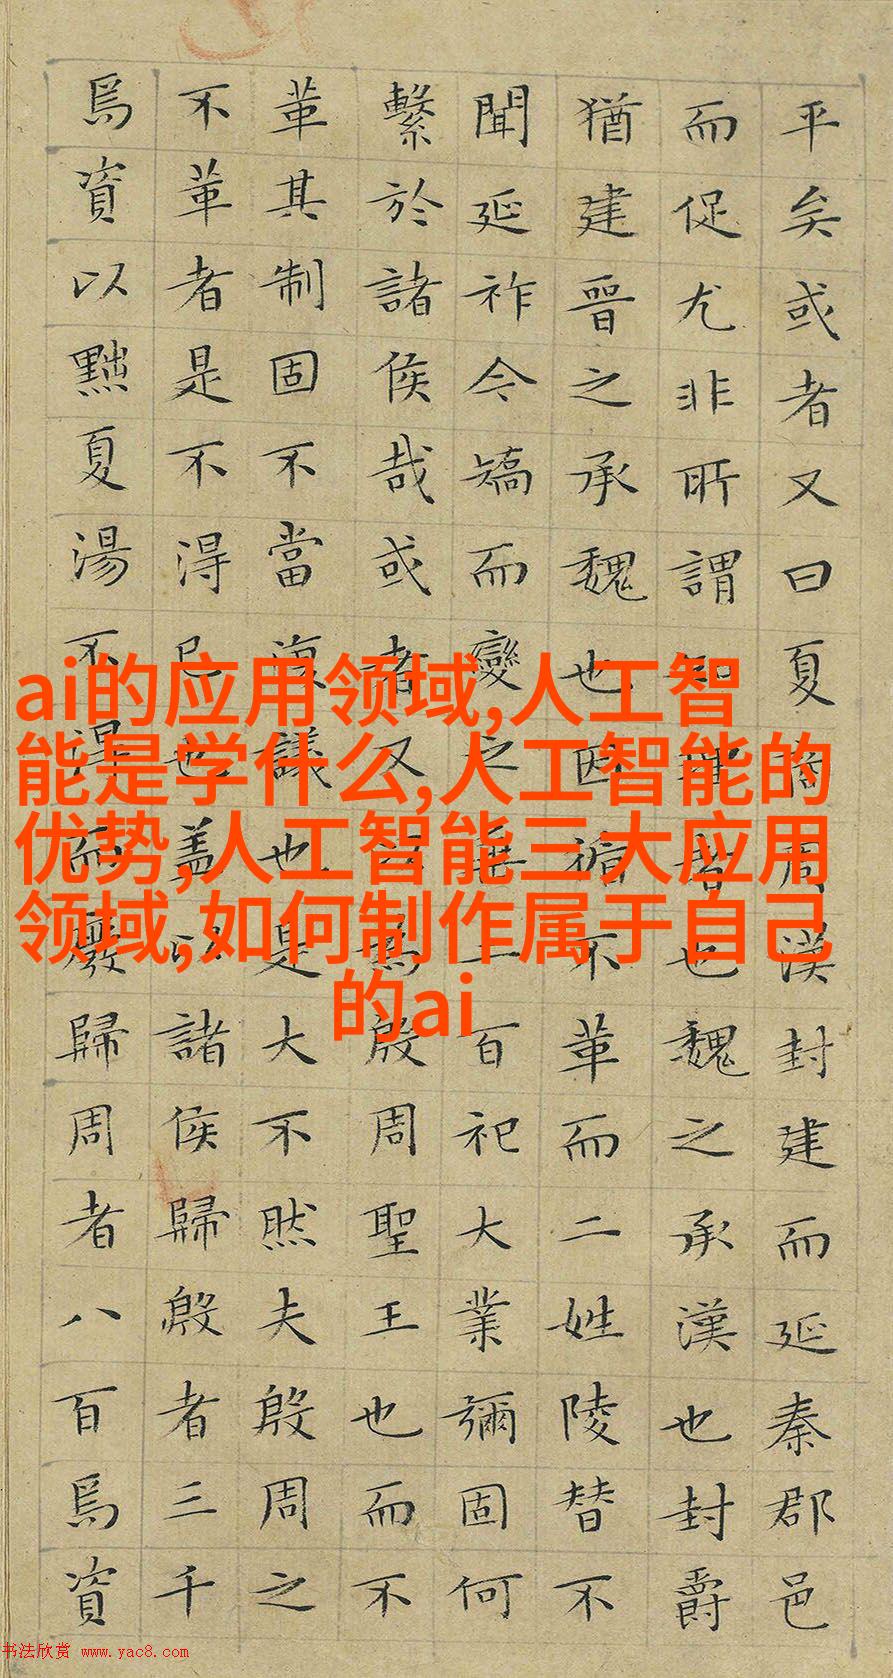 平矣或者又曰夏商周漢封建而延秦郡邑
而促尤非所謂知理者也魏之承漢也封爵
猶建晉之承魏也因循不革而二姓陵替不
聞延祚今矯而變之垂二百祀大業彌固何
繫於諸侯哉或者又以爲殷周聖王也而不
革其制固不當復議也是大不然夫殷周之
不革者是不得已也盖以諸侯歸殷者三千
焉資以黜夏湯不得而廢歸周者八百焉資
ai的应用领域,人工智
能是学什么,人工智能的
优势,人工智能三大应用
领域,如何制作属于自己
的ai
书法欣赏 www.yac8.com